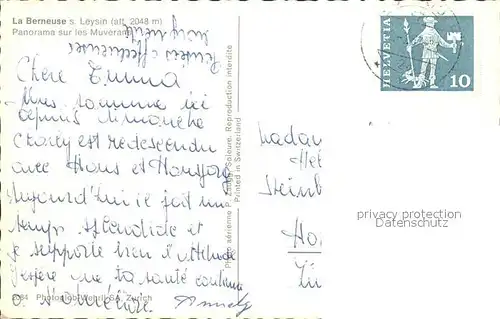 La Berneuse s. Leysin (alt. 2048 m)
Panorama sur les Muverans
Pensées affectueuses
Chère Emma
Nous sommes ici
depuis dimanche
est redescendu
avec Hans et Hansjörg
Aujourd'hui il fait un
temps splendide et
je supporte bien l'altitude
J'espère que ta santé continue
à s'améliorer.
Photoglob-Wehrli SA, Zürich
Photo aérienne P. Soleure. Reproduction interdite
Printed in Switzerland
HELVETIA
10
Madam
Steinb
Ho
Zü
privacy protection
Datenschutz